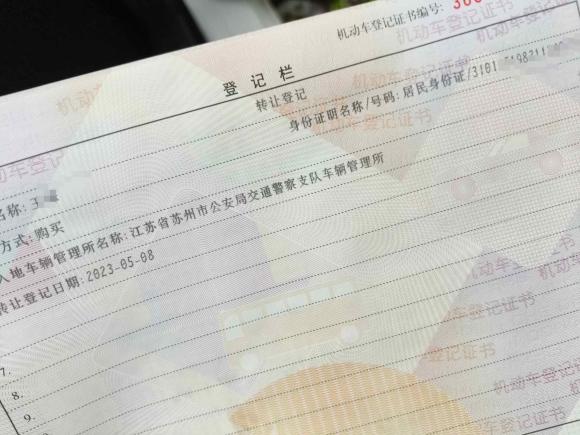 机动车登记证书编号:
登记栏
转让登记
身份证明名称/号码:居民身份证/3101
名称:王
方式:购买
入地车辆管理所名称:江苏省苏州市公安局交通警察支队车辆管理所
转让登记日期:2023-05-08
7.
8.
9.
机动车登记证书
机动车登记证书
机动车登记证书
机动车登记证书